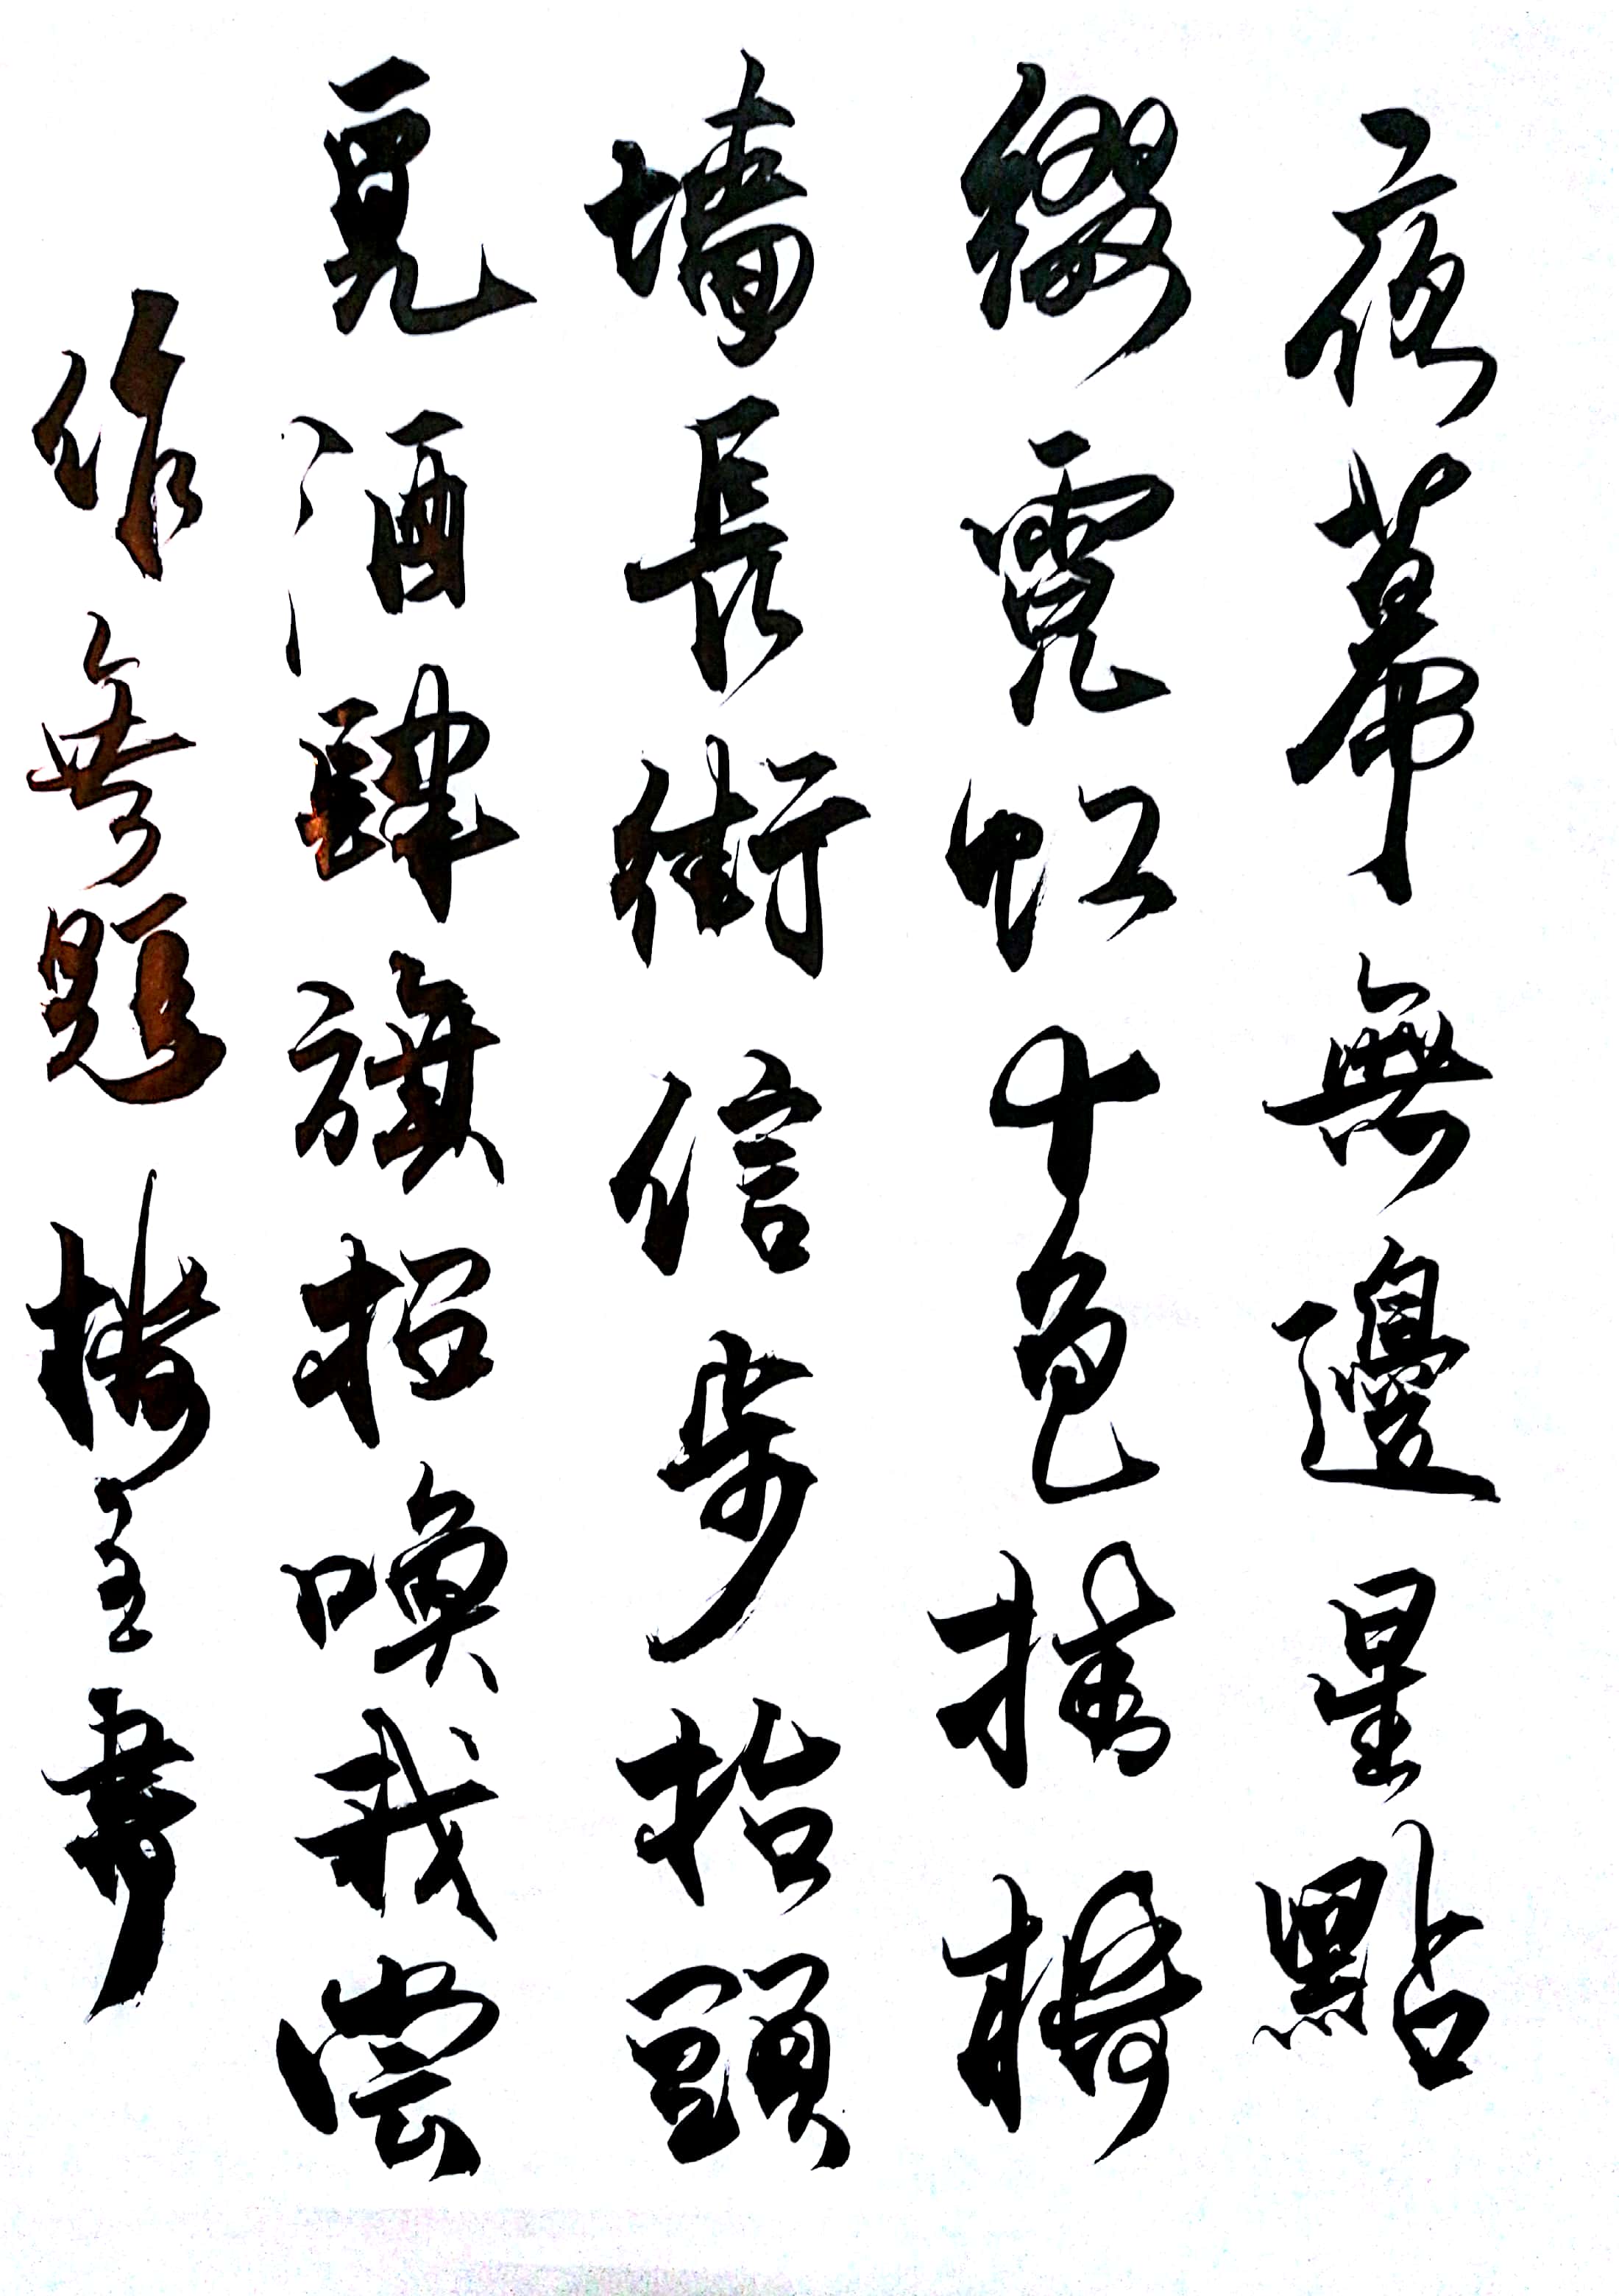 夜幕無邊星點
綴霓虹十色描樓
墙長街信步抬頭
覓酒肆旗招喚我嘗
作無題 樓主書